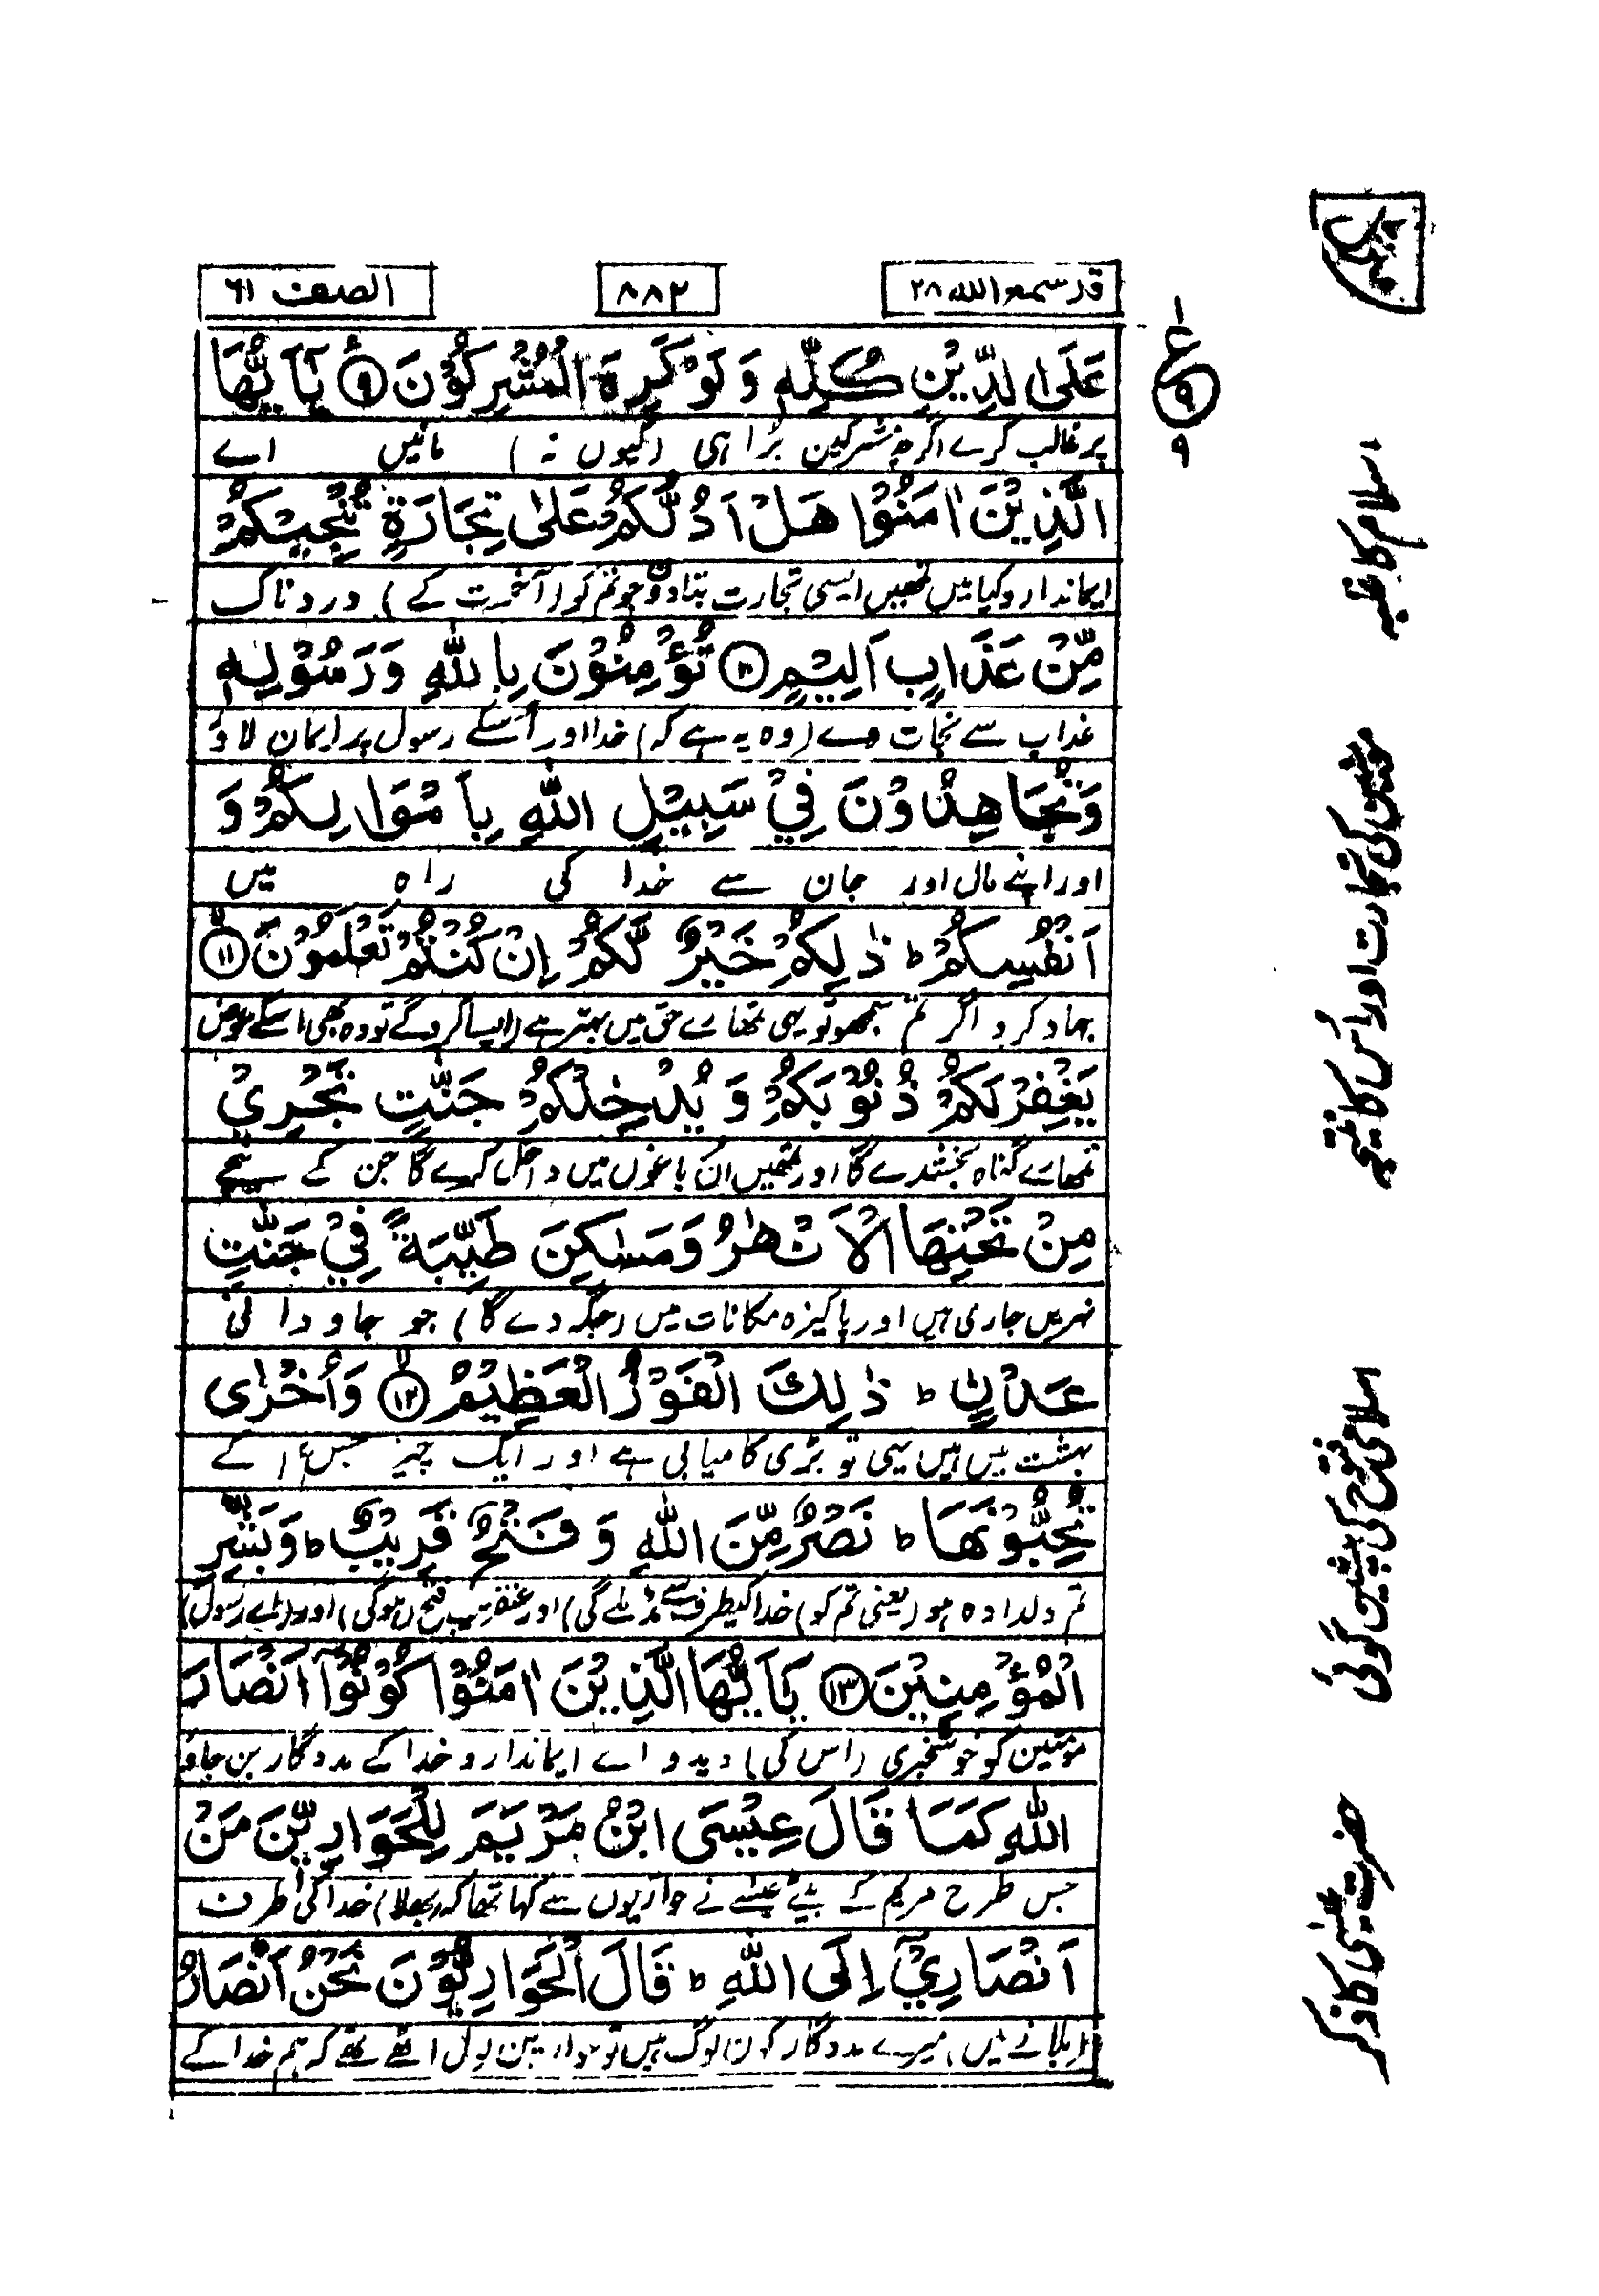 قد سمع الله ۲۸
۸۸۲
الصف ۶۱
عَلَى الدِّيْنِ كُلِّهٖ وَ لَوْ كَرِهَ الْمُشْرِكُوْنَ ۹ يٰۤاَيُّهَا
پر غالب کرے اگرچہ مشرکین بُرا ہی (کیوں نہ) مانیں اے
الَّذِيْنَ اٰمَنُوْا هَلْ اَدُلُّكُمْ عَلٰى تِجَارَةٍ تُنْجِيْكُمْ
ایماندارو کیا میں تمھیں ایسی تجارت بتادوں جو تم کو (آخرت کے) دردناک
مِّنْ عَذَابٍ اَلِيْمٍ ۱۰ تُؤْمِنُوْنَ بِاللّٰهِ وَرَسُوْلِهٖ
عذاب سے نجات دے (وہ یہ ہے کہ) خدا اور اُسکے رسول پر ایمان لاؤ
وَتُجَاهِدُوْنَ فِيْ سَبِيْلِ اللّٰهِ بِاَمْوَالِكُمْ وَ
اور اپنے مال اور جان سے خدا کی راہ میں
اَنْفُسِكُمْ ؕ ذٰلِكُمْ خَيْرٌ لَّكُمْ اِنْ كُنْتُمْ تَعْلَمُوْنَ ۱۱
جہاد کرو اگر تم سمجھو تو یہی تمھارے حق میں بہتر ہے (ایسا کروگے تو وہ بھی اسکے عوض
يَغْفِرْ لَكُمْ ذُنُوْبَكُمْ وَ يُدْخِلْكُمْ جَنّٰتٍ تَجْرِيْ
تمھارے گناہ بخشدے گا اور تمھیں ان باغوں میں داخل کرے گا جن کے نیچے
مِنْ تَحْتِهَا الْاَنْهٰرُ وَمَسٰكِنَ طَيِّبَةً فِيْ جَنّٰتِ
نہریں جاری ہیں اور پاکیزہ مکانات میں (جگہ دے گا) جو جاودانی
عَدْنٍ ؕ ذٰلِكَ الْفَوْزُ الْعَظِيْمُ ۱۲ وَاُخْرٰى
بہشت میں ہیں یہی تو بڑی کامیابی ہے اور ایک چیز جس کے
تُحِبُّوْنَهَا ؕ نَصْرٌ مِّنَ اللّٰهِ وَ فَتْحٌ قَرِيْبٌ ؕ وَبَشِّرِ
تم دلدادہ ہو (یعنی تم کو) خدا کیطرف سے مدد ملے گی) اور عنقریب فتح ہوگی) اور (اے رسول)
الْمُؤْمِنِيْنَ ۱۳ يٰۤاَيُّهَا الَّذِيْنَ اٰمَنُوْا كُوْنُوْۤا اَنْصَارَ
مومنین کو خوشخبری (اس کی) دیدو اے ایماندارو خدا کے مددگار بن جاؤ
اللّٰهِ كَمَا قَالَ عِيْسَى ابْنُ مَرْيَمَ لِلْحَوَارِيّٖنَ مَنْ
جس طرح مریم کے بیٹے عیسٰے نے حواریوں سے کہا تھا کہ (بھلا) خدا کی طرف
اَنْصَارِيْۤ اِلَى اللّٰهِ ؕ قَالَ الْحَوَارِيُّوْنَ نَحْنُ اَنْصَارُ
(بلانے میں) میرے مددگار کون لوگ ہیں تو حواریین بول اٹھے تھے کہ ہم خدا کے
ع
۹
۹
اسلام کا غلبہ
مومنین کی تجارت اور اُس کا نتیجہ
اسلامی فتوح کی پیشین گوئی
حضرت عیسٰی کا ذکر